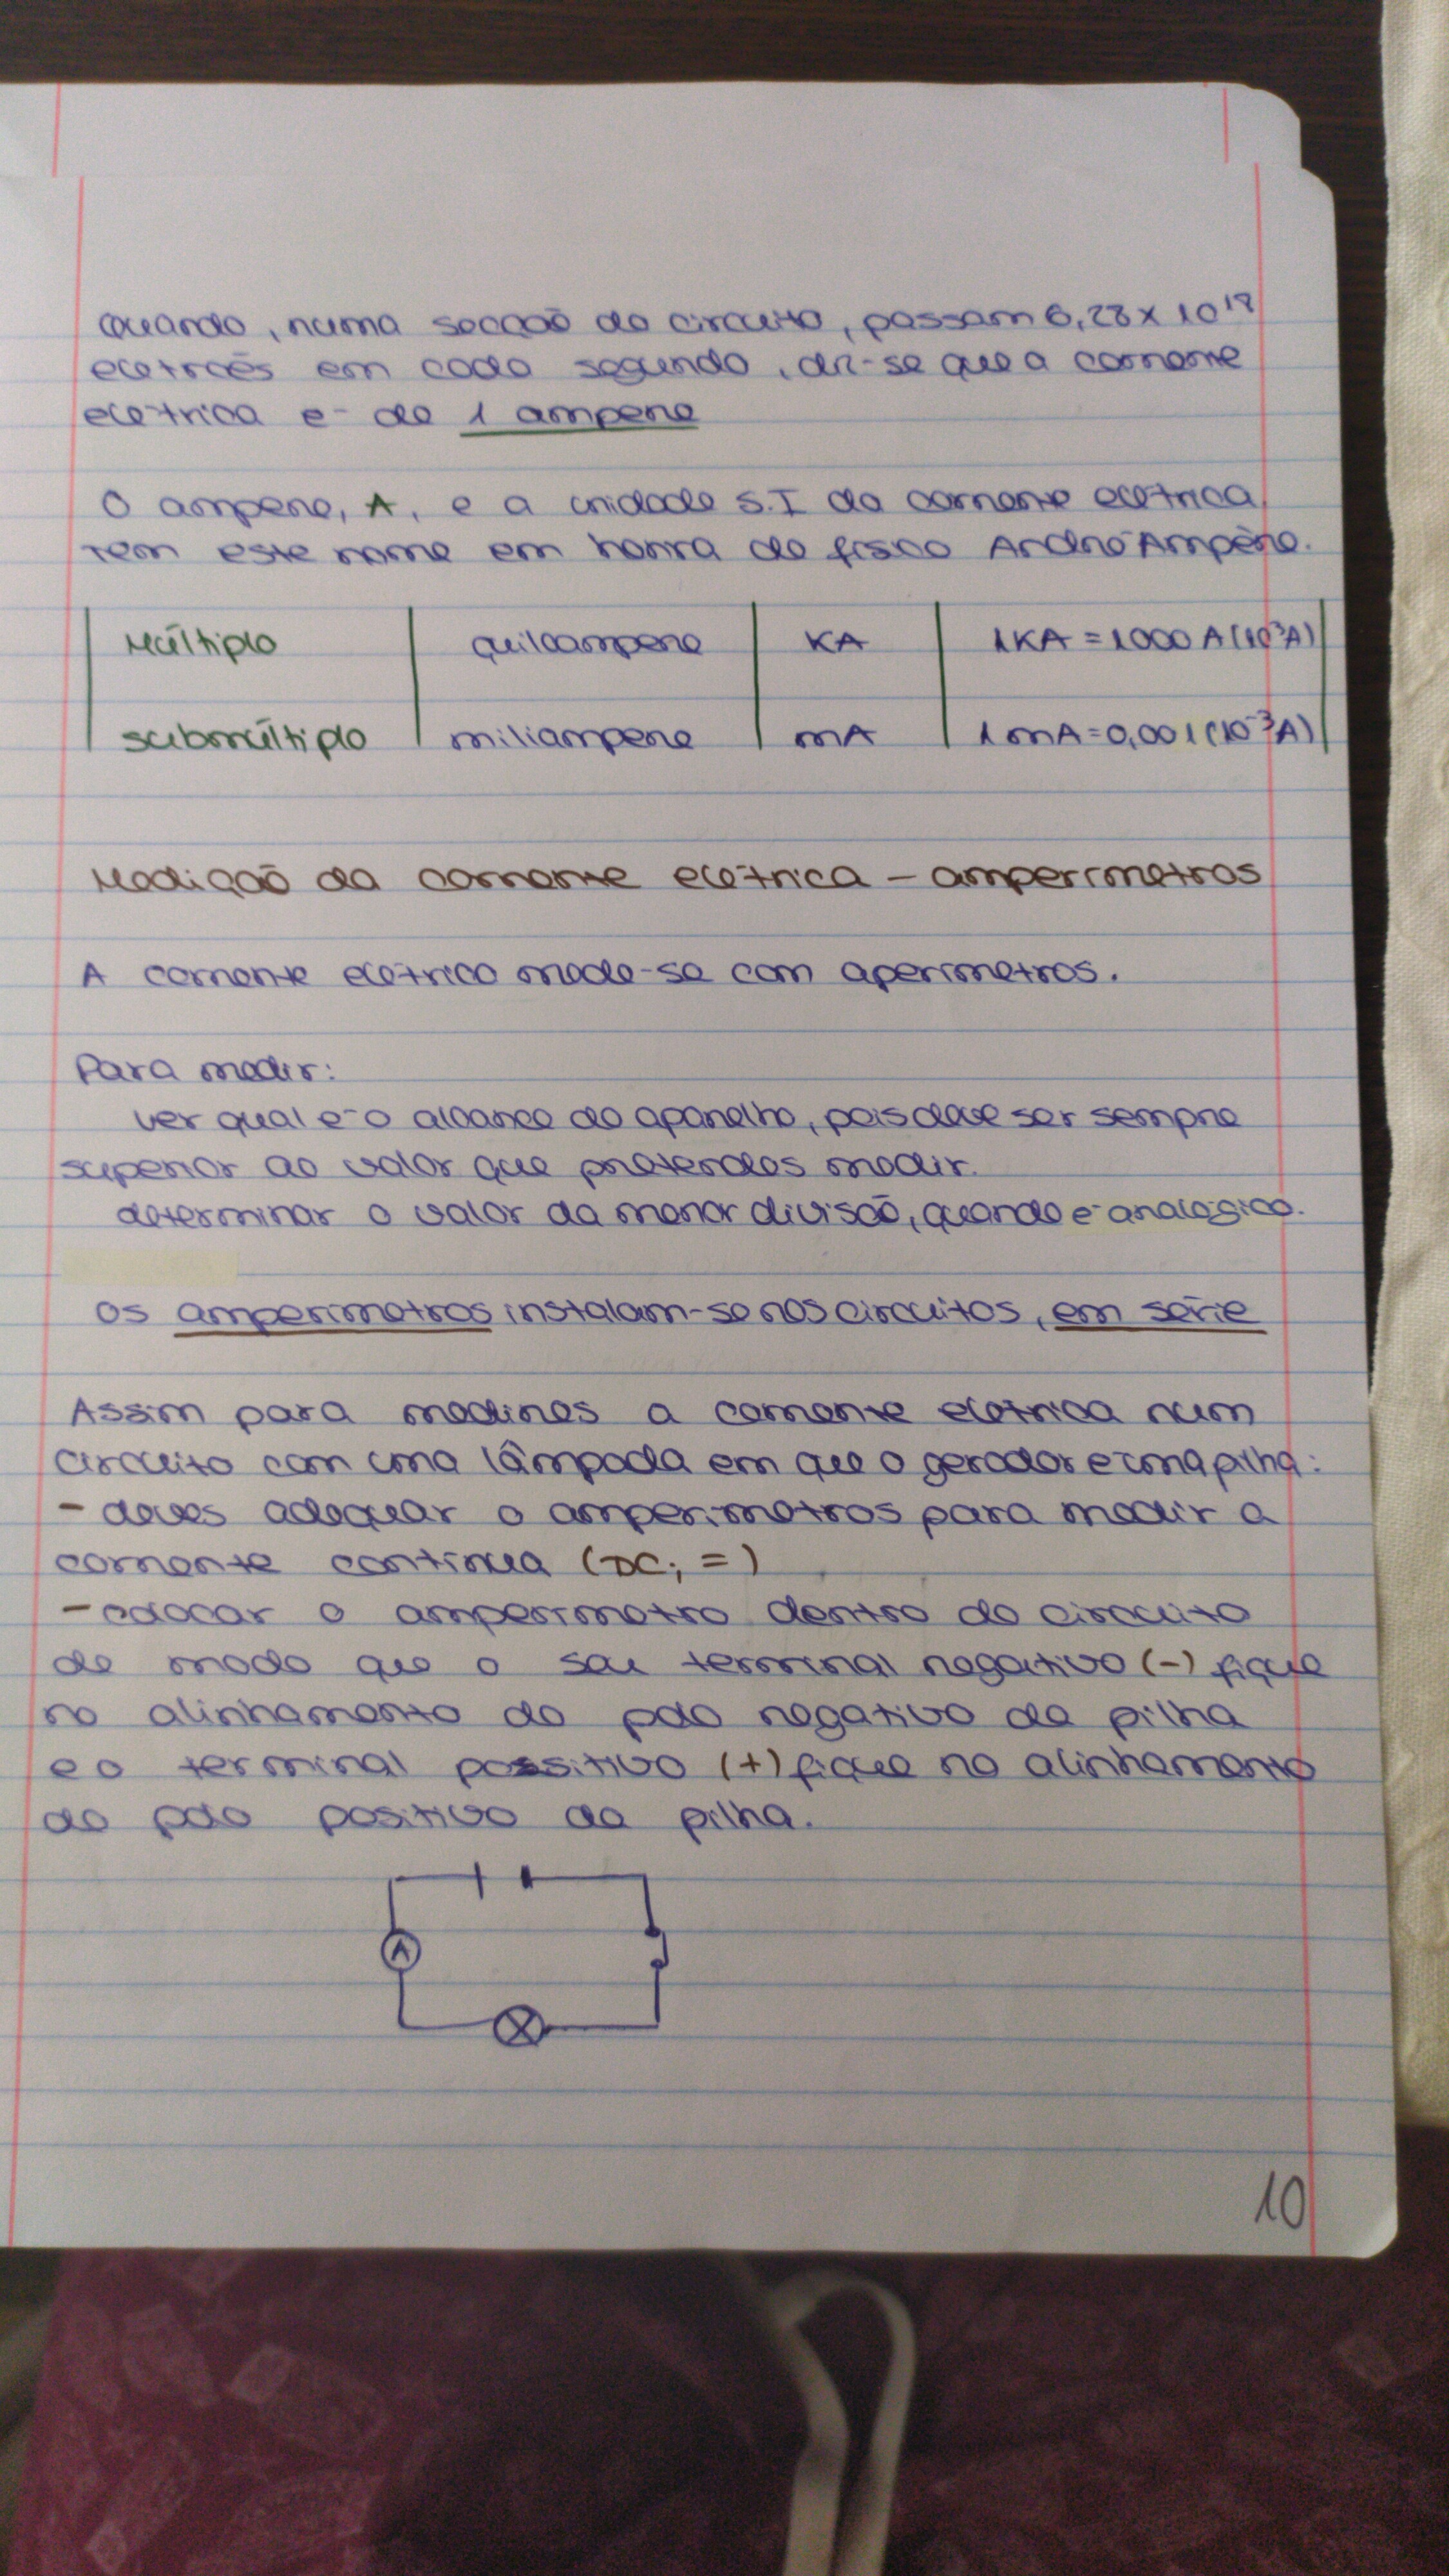 Quando, numa secção do circuito, passam 6,28 x 10¹⁸
eletrões em cada segundo, diz-se que a corrente
elétrica é de 1 ampere
O ampere, A, é a unidade S.I da corrente elétrica,
tem este nome em honra do físico André Ampère.
Múltiplo quiloampere KA 1KA = 1000 A (10³A)
submúltiplo miliampere mA 1 mA = 0,001 (10⁻³A)
Medição da corrente elétrica - amperímetros
A corrente elétrica mede-se com aperímetros.
Para medir:
ver qual é o alcance do aparelho, pois deve ser sempre
superior ao valor que pretendes medir.
determinar o valor da menor divisão, quando é analógico.
Os amperímetros instalam-se nos circuitos, em série
Assim para medires a corrente elétrica num
circuito com uma lâmpada em que o gerador é uma pilha:
- deves adequar o amperímetros para medir a
corrente contínua (DC; =)
- colocar o amperímetro dentro do circuito
de modo que o seu terminal negativo (-) fique
no alinhamento do polo negativo da pilha
e o terminal possitivo (+) fique no alinhamento
do polo positivo da pilha.
A
10